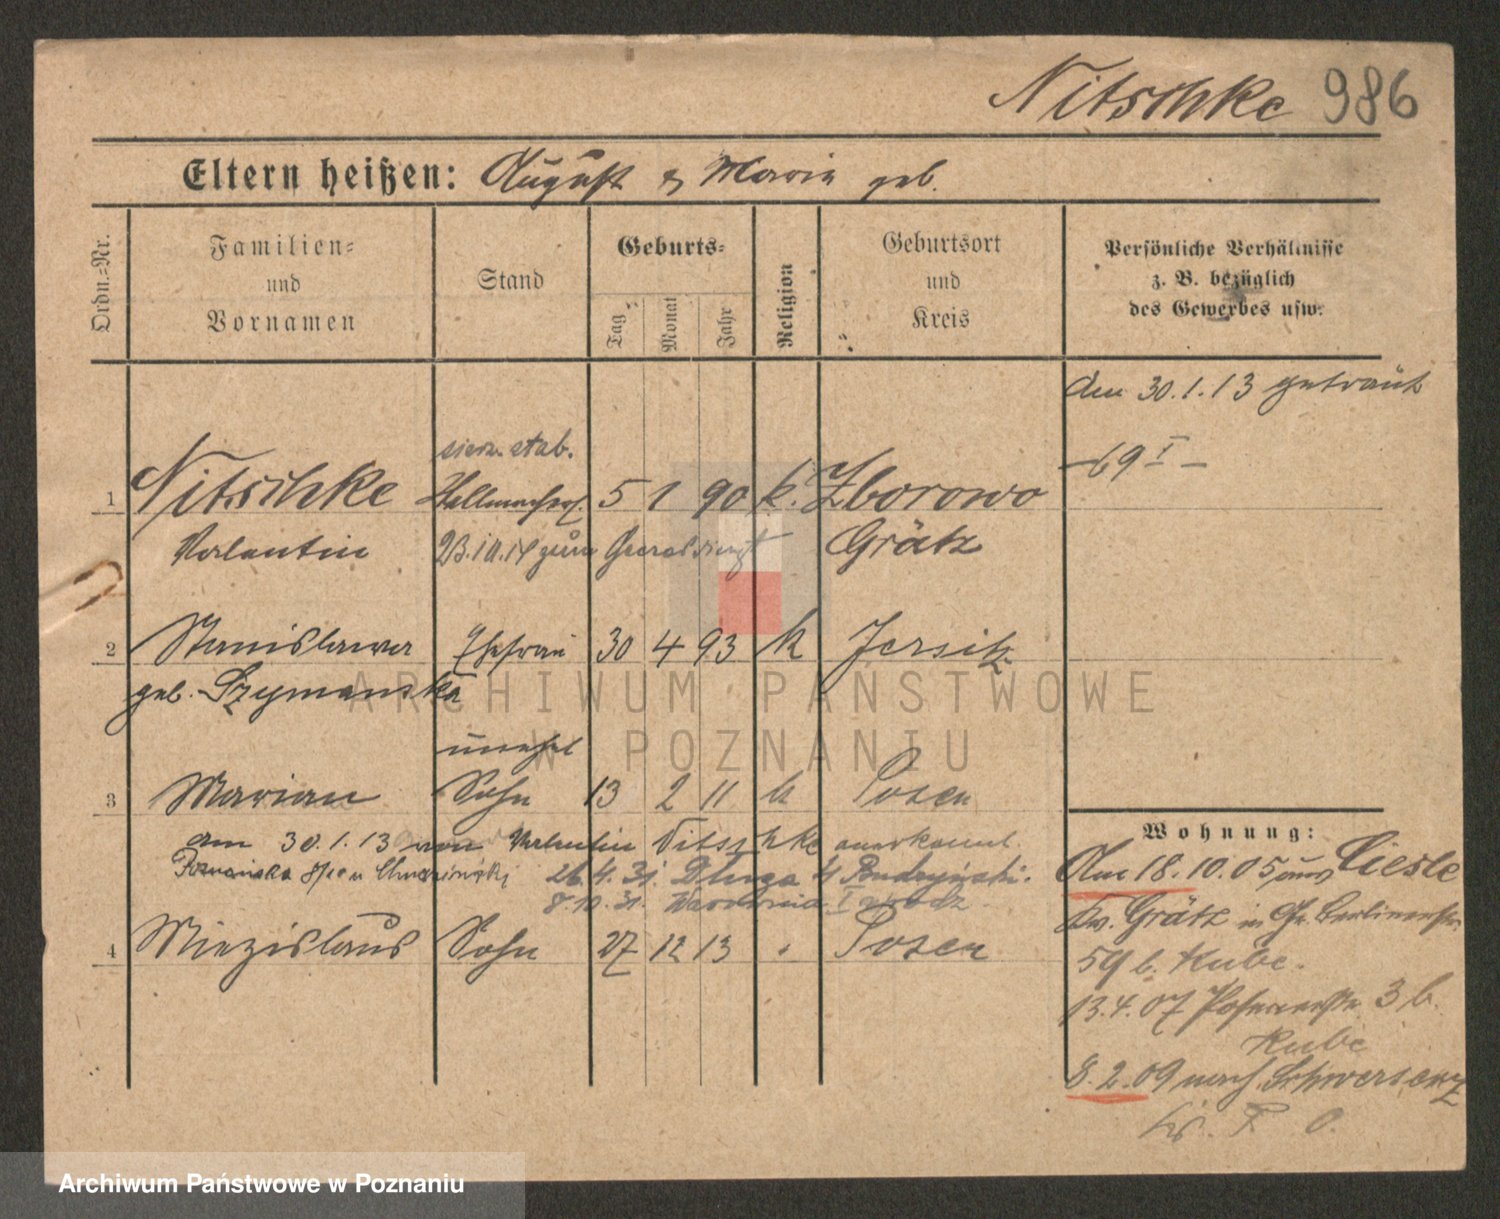 Nitschke 986
Eltern heißen: August & Maria geb.
Ordn.-Nr.
Familien-
und
Vornamen
Stand
Geburts-
Tag
Monat
Jahr
Religion
Geburtsort
und
Kreis
Persönliche Verhältnisse
z. B. bezüglich
des Gewerbes usw.
Am 30.1.13 getraut
69 I
1 Nitschke 5 1 90 k. Zborowo
Valentin 23.10.14 zum Heeresdienst Grätz
2 Stanislawa Ehefrau 30 4 93 k Jersitz
geb. Szymanska
unehel
3 Marian Sohn 13 2 11 k Posen
am 30.1.13 von Valentin Nitschke anerkannt.
26.4.31. Dluga 4 Budzyński.
8.10.31.
4 Miezislaus Sohn 27 12 13 " Posen
Wohnung:
Am 18.10.05 aus
Kr. Grätz in Gr. Berlinerstr.
59 b. Kube.
13.4.07 Posenerstr. 3 b.
Kube
8.2.09 nach Schwersenz
Kr. P. O.
ARCHIWUM PAŃSTWOWE
W POZNANIU
Archiwum Państwowe w Poznaniu